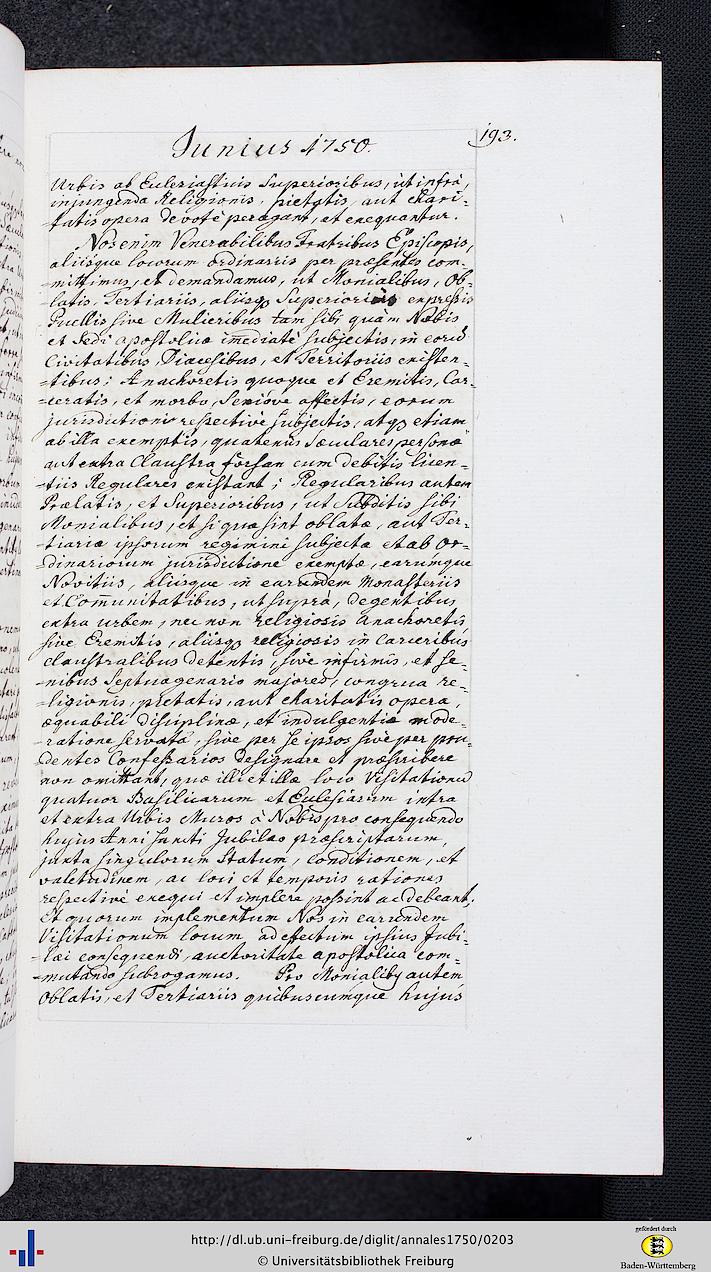 193.
Junius 1750.
Urbis ab Ecclesiasticis Superioribus, ut infrà,
injungenda Religionis, pietatis, aut chari-
-tatis opera devotè peragant, et exequantur.
Nos enim Venerabilibus Fratribus Episcopis,
aliisque locorum ordinariis per præsentes com-
-mittimus, et demandamus, ut Monialibus, Ob-
-latis, Tertiariis, aliisq3 Superioribus expressis
Puellis sive Mulieribus tam sibi, quàm Nobis
et Sedi apostolicæ im̅ediatè subjectis, in eorum
Civitatibus, Diæcesibus, et Territoriis existen-
-tibus; Anachoretis quoque et Eremitis, Car-
-ceratis, et morbo, Seniove affectis, eorum
jurisdictioni respectivè subjectis, atq3 etiam
ab illa exemptis, quatenùs Sæculares personæ
aut extra Claustra forsan cum debitis licen-
-tiis Regulares existant; Regularibus autem
Prælatis, et Superioribus, ut Subditis sibi
Monialibus, et si quæ sint oblatæ, aut Ter-
-tiariæ ipsorum regimini subjectæ et ab Or-
-dinariorum jurisdictione exemptæ, earumque
Novitiis, aliisque in earundem Monasteriis
et Com̅unitatibus, ut suprà, degentibus
extra urbem, nec non religiosis anachoretis
sive Eremitis, aliisq3 religiosis in Carceribus
claustralibus detentis, sive infirmis, et se-
-nibus Septuagenario majores, congrua re-
-ligionis, pietatis, aut charitatis opera,
æquabili disciplinæ, et indulgentiæ mode-
-ratione servatâ, sive per se ipsos sive per pru-
dentes Confessarios designare et præscribere
non omittant, quæ illi et illæ loco Visitationum
quatuor Basilicarum et Ecclesiarum intra
et extra Urbis Muros à Nobis pro consequendo
hujus Anni sancti Jubilæo præscriptarum,
juxta singulorum Statum, conditionem, et
valetudinem, ac loci et temporis rationes
respectivè exequi et implere possint ac debeant,
et quorum implementum Nos in earundem
Visitationum locum ad effectum ipsius Jubi-
-læi consequendi, auctoritate apostolica com-
-mutando subrogamus. Pro Monialib9 autem
Oblatis, et Tertiariis quibuscumque hujus
http://dl.ub.uni-freiburg.de/diglit/annales1750/0203
© Universitätsbibliothek Freiburg
gefördert durch
Baden-Württemberg